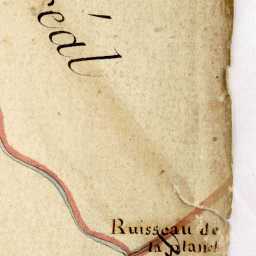 réal
Ruisseau de
la planet